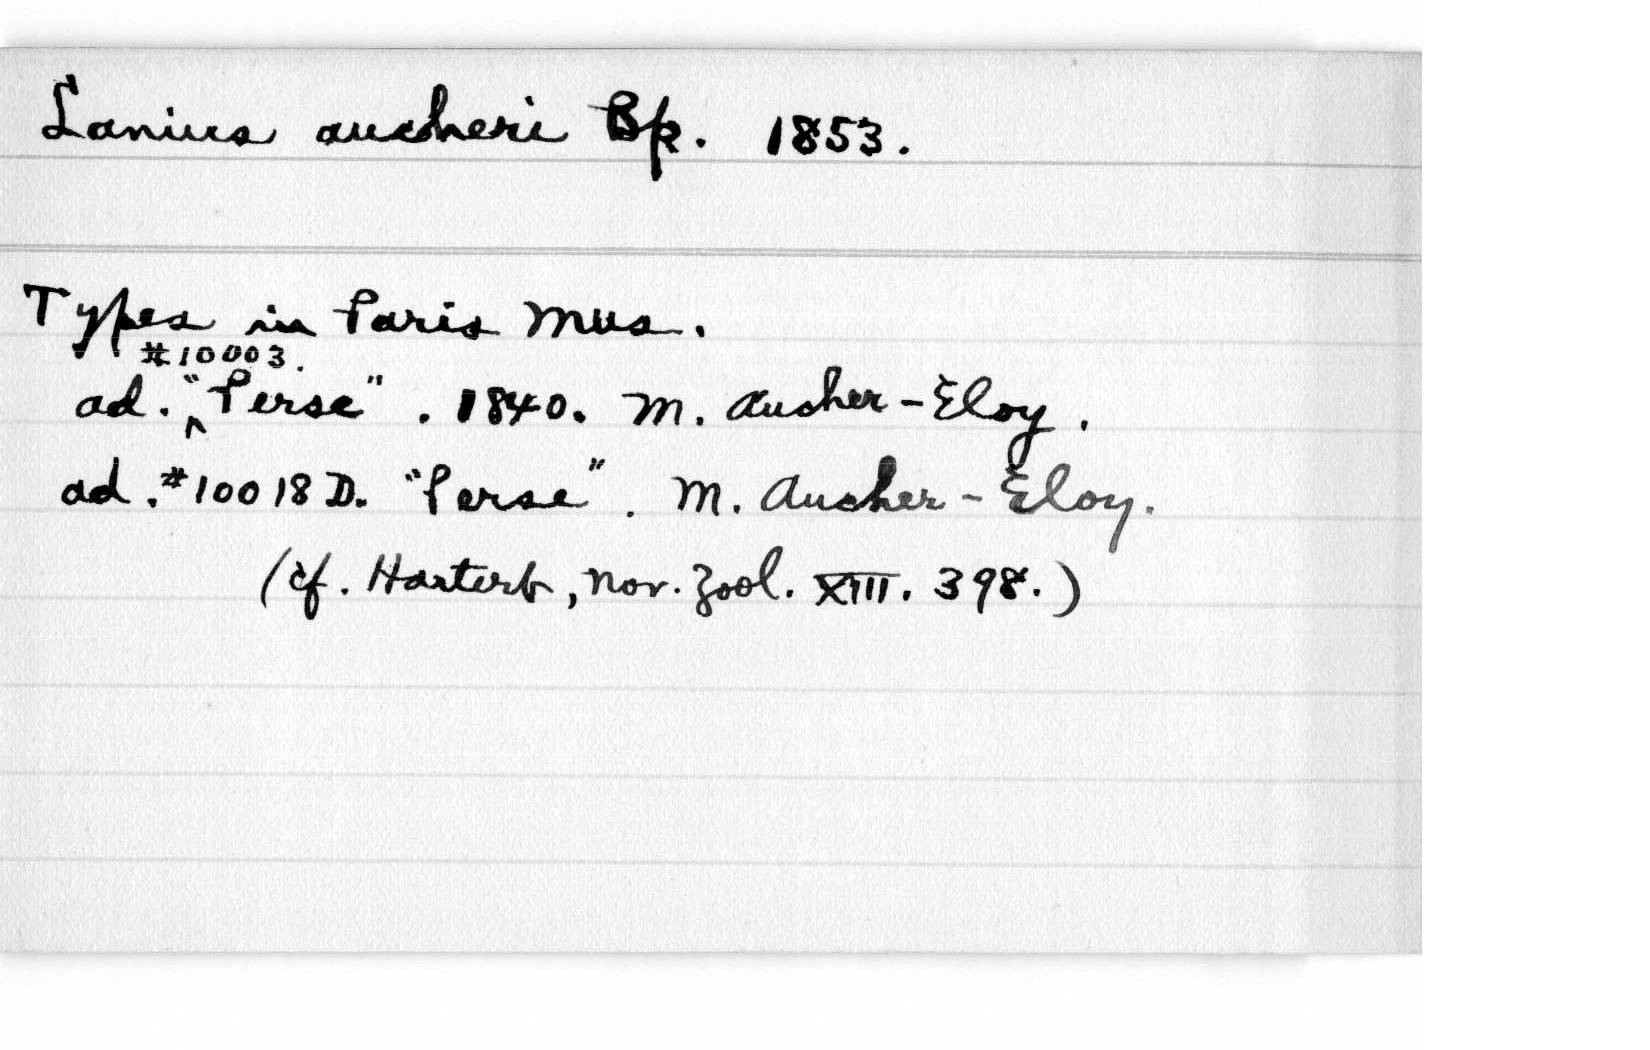 Lanius aucheri Bp. 1853.
Types in Paris Mus.
#10003.
ad. ^ "Perse". 1840. M. Aucher-Eloy.
ad. #10018D. "Perse". M. Aucher-Eloy.
(cf. Hartert, Nov. Zool. XIII. 398.)